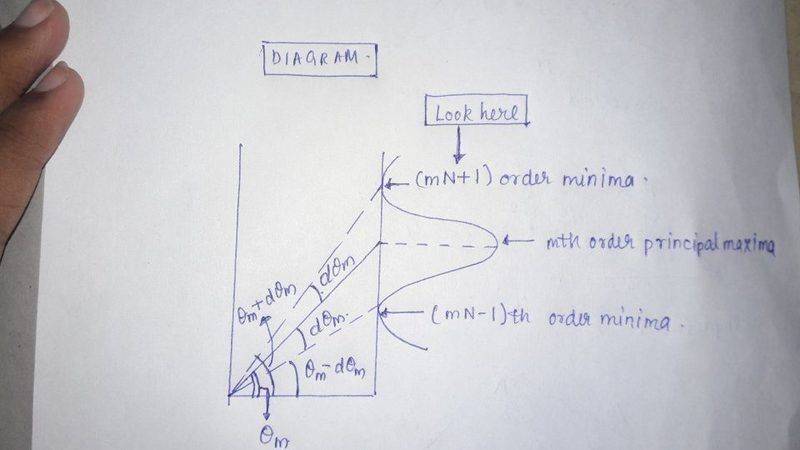 DIAGRAM.
Look here
(mN+1) order minima.
mth order principal maxima
θm+dθm
dθm
dθm.
(mN-1)th order minima.
θm-dθm
θm